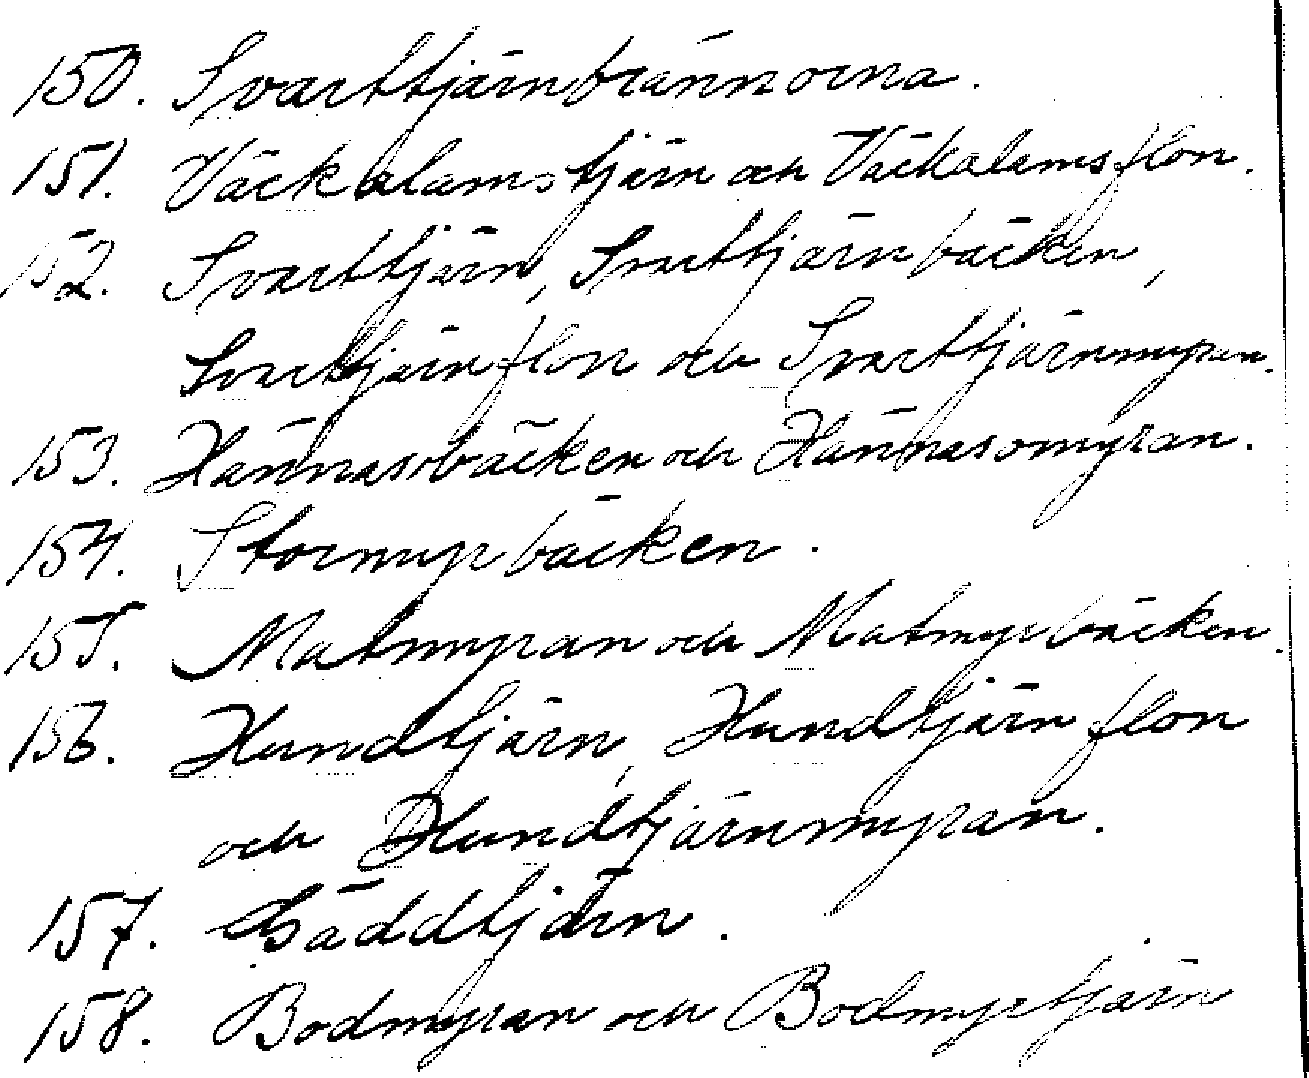 150. Svarttjärnbrännorna.
151. Väckalamstjärn och Väckalamsflon.
152. Svarttjärn, Svarttjärnbäcken,
Svarttjärnflon och Svarttjärnmyran.
153. Hännasobäcken och Hännasomyran.
154. Stormyrbäcken.
155. Matmyran och Matmyrbäcken.
156. Hundtjärn, Hundtjärnflon
och Hundtjärnmyran.
157. Gäddtjärn.
158. Bodmyran och Bodmyrtjärn